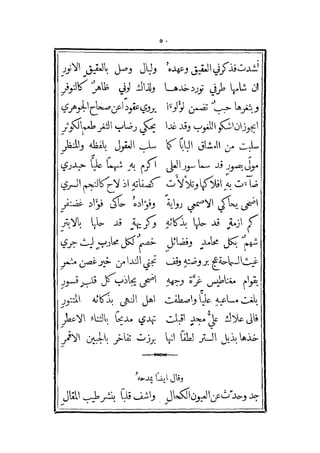 ٥٠
أنشدت فذكرني العقيق وعهده وليال وصل بالعقيق الانور
ان شامها طرفي تورد خدهـا ولذاك لوني ظاهر كالنوفر
وبثغرها حبب تضمن لؤلؤا يروي عقودا عن صحاح الجوهري
سلبت من العشاق البابا كما سلب العقول بلفظه والمنظر
مولى بصور قد سما سور العلى اكرم به شهما عليا حيدري
ضآءت به افلاكها وتلألأت كصفاته اذ لاح كالنجم السري
اضحى يحاكي الاصمعي رواية وفؤاده حاكى فؤاد غضنفر
كم ازمة قد حلها بذكائه وكريهة قد حلها بالابتر
شهم بكل محامد وفضائل خصم لكل محارب ليث جري
غيث السماحة عج بروضته وقف تجني الندا من خير غصن مثمر
بقوام مغناطيس غرة وجهه اضحى يجاذب كل قلب قسور
بلغت مساعيه عليا واصطفت اهل النهى بذكائه المتنور
فالى علاك علي مجد اقبلت تهدي مديحا بالثناء الاعطر
خذها بذيل الستر لطفا انها برزت تفاخر بالجبين الاقمر
وقال ايضا يمدحه
جد وحدث عن العيون الكحال واشف قلبا بنشر طيب المقال